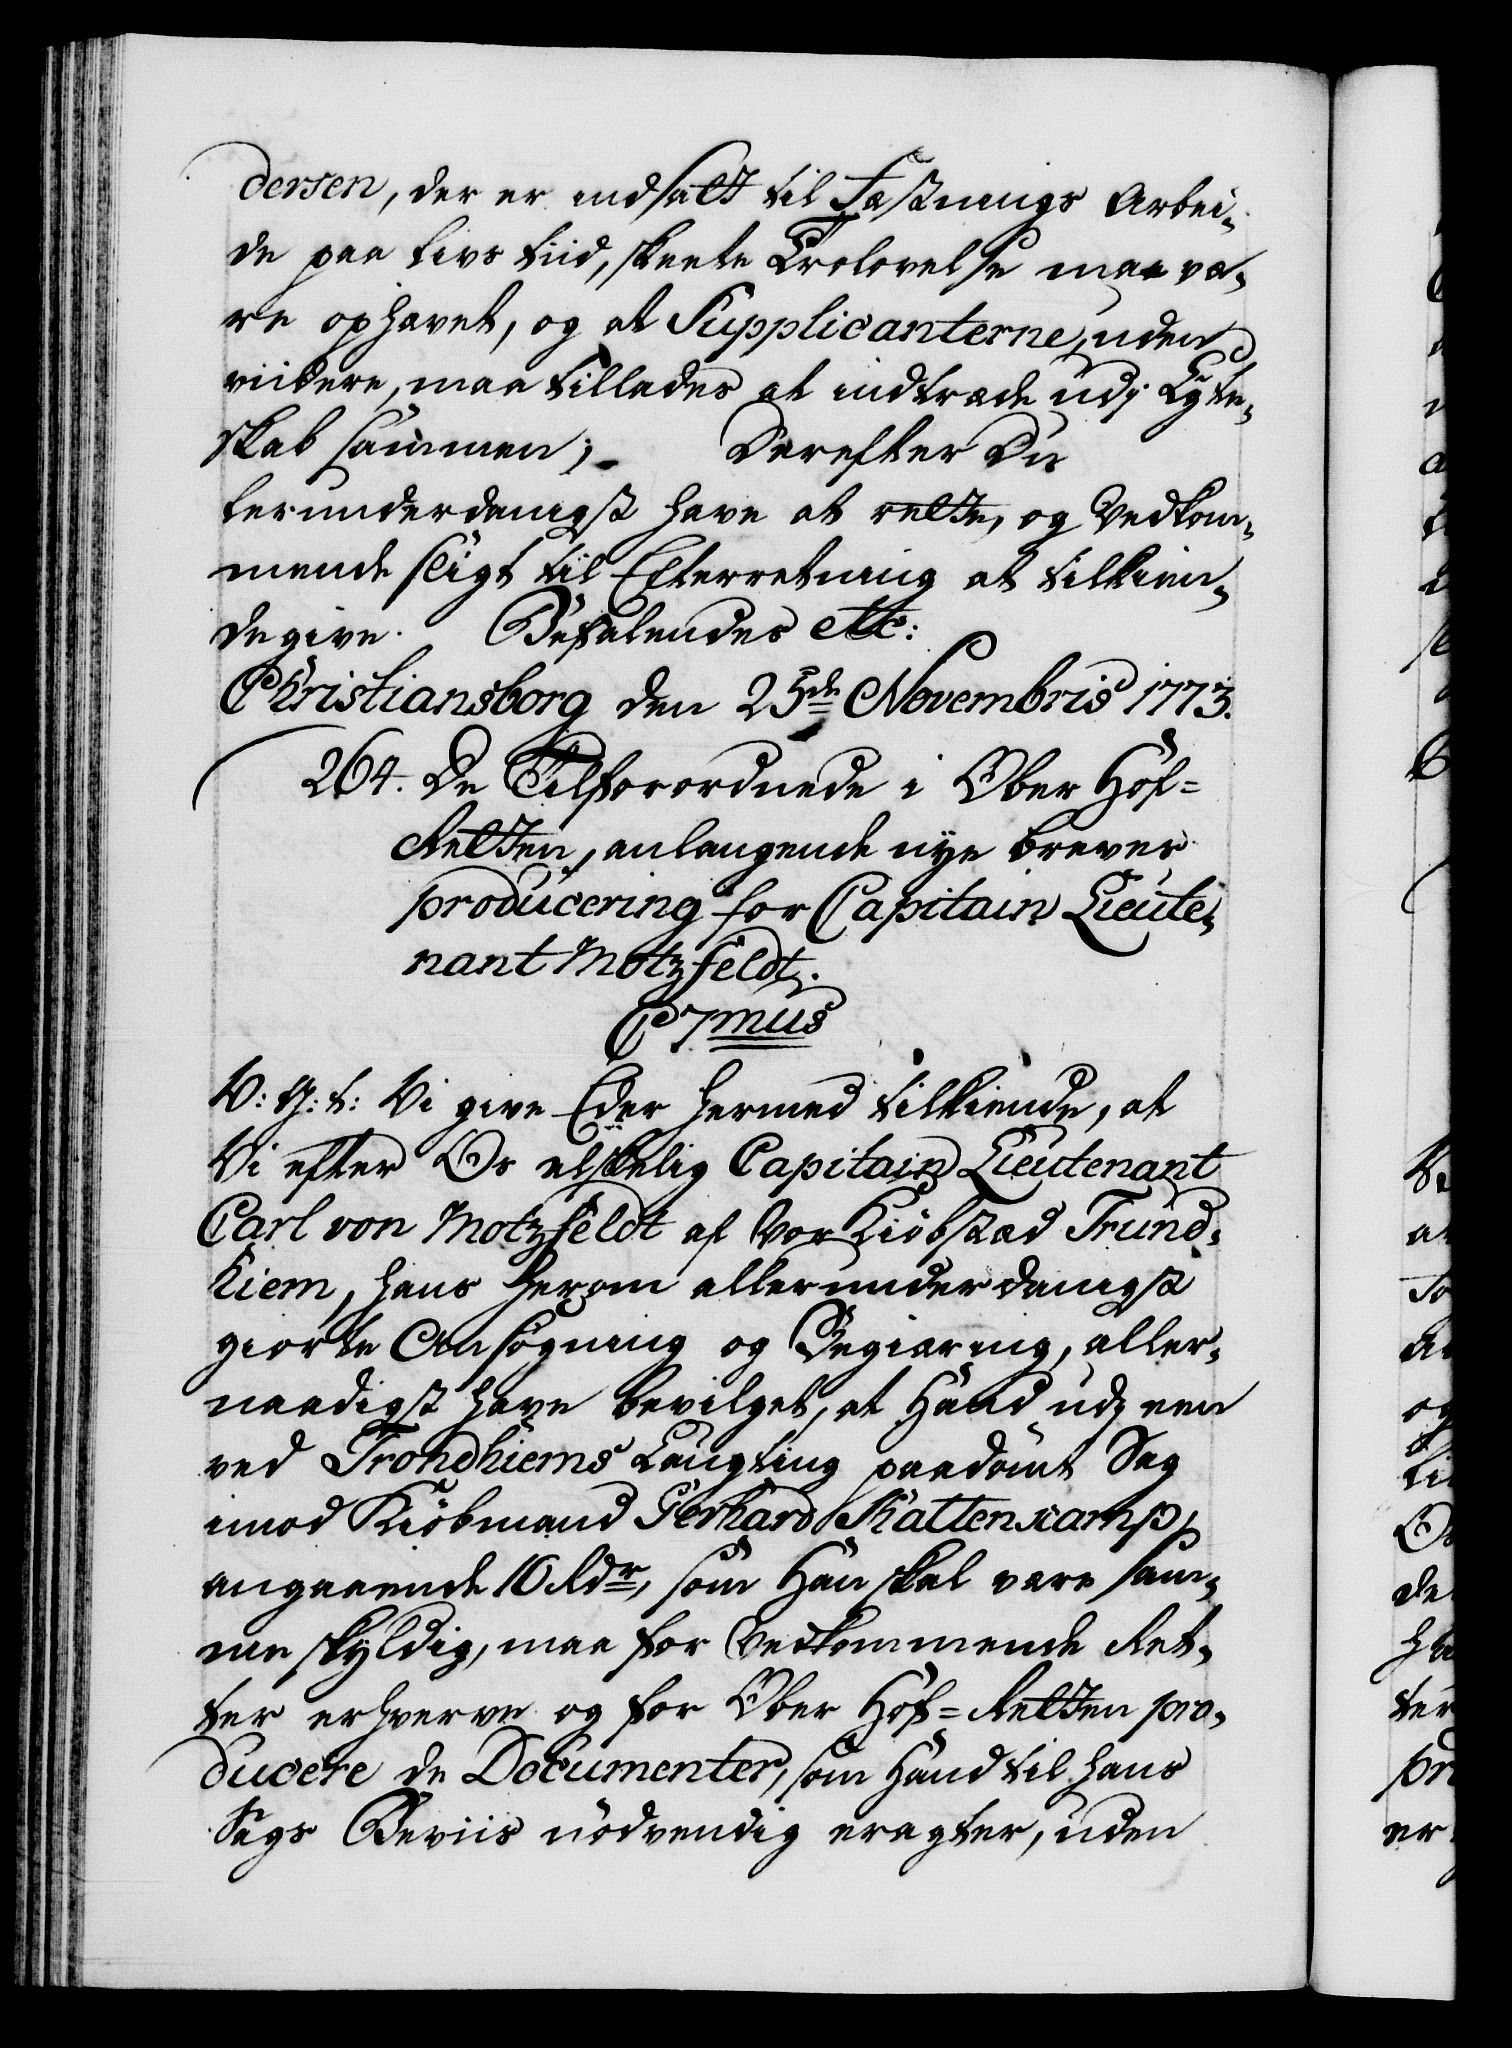 dersen, der er indsatt til Fæstnings Arbei-
de paa Livs tiid, skeete Trolovelse maa væ-
re ophævet, og at Supplicanterne, uden
viidere, maa tillades at indtræde udj Ægte-
skab sammen; Derefter Du
lerunderdanigst have at rette, og Vedkom-
mende sligt til Efterretning at tilkien-
degive. Befalendes etc:
Christiansborg den 25de Novembris 1773.
264. De Tilforordnede i Ober Hof=
Retten, anlangende nye brever
producering for Capitain Lieute-
nant Motzfeldt.
C7mus
V: G: T: Vi give Eder hermed tilkiende, at
Vi efter Os elskelig Capitain Lieutenant
Carl von Motzfeldt af Vor Kiøbstæd Trund-
hiem, hans herom allerunderdanigst
giorte Ansøgning og Begiæring, aller-
naadigst have bevilget, at Hand udj een
ved Trondhiems Laugting paadømt Sag
imod Kiøbmand Gerhard Kattenscamp,
angaaende 10 Rdr, som Han skal være sam-
me skyldig, maa for Vedkommende Ret-
ter erhverve og for Ober Hof=Retten pro-
ducere de Documenter, som Hand til hans
Sags Beviis nødvendig eragter, uden